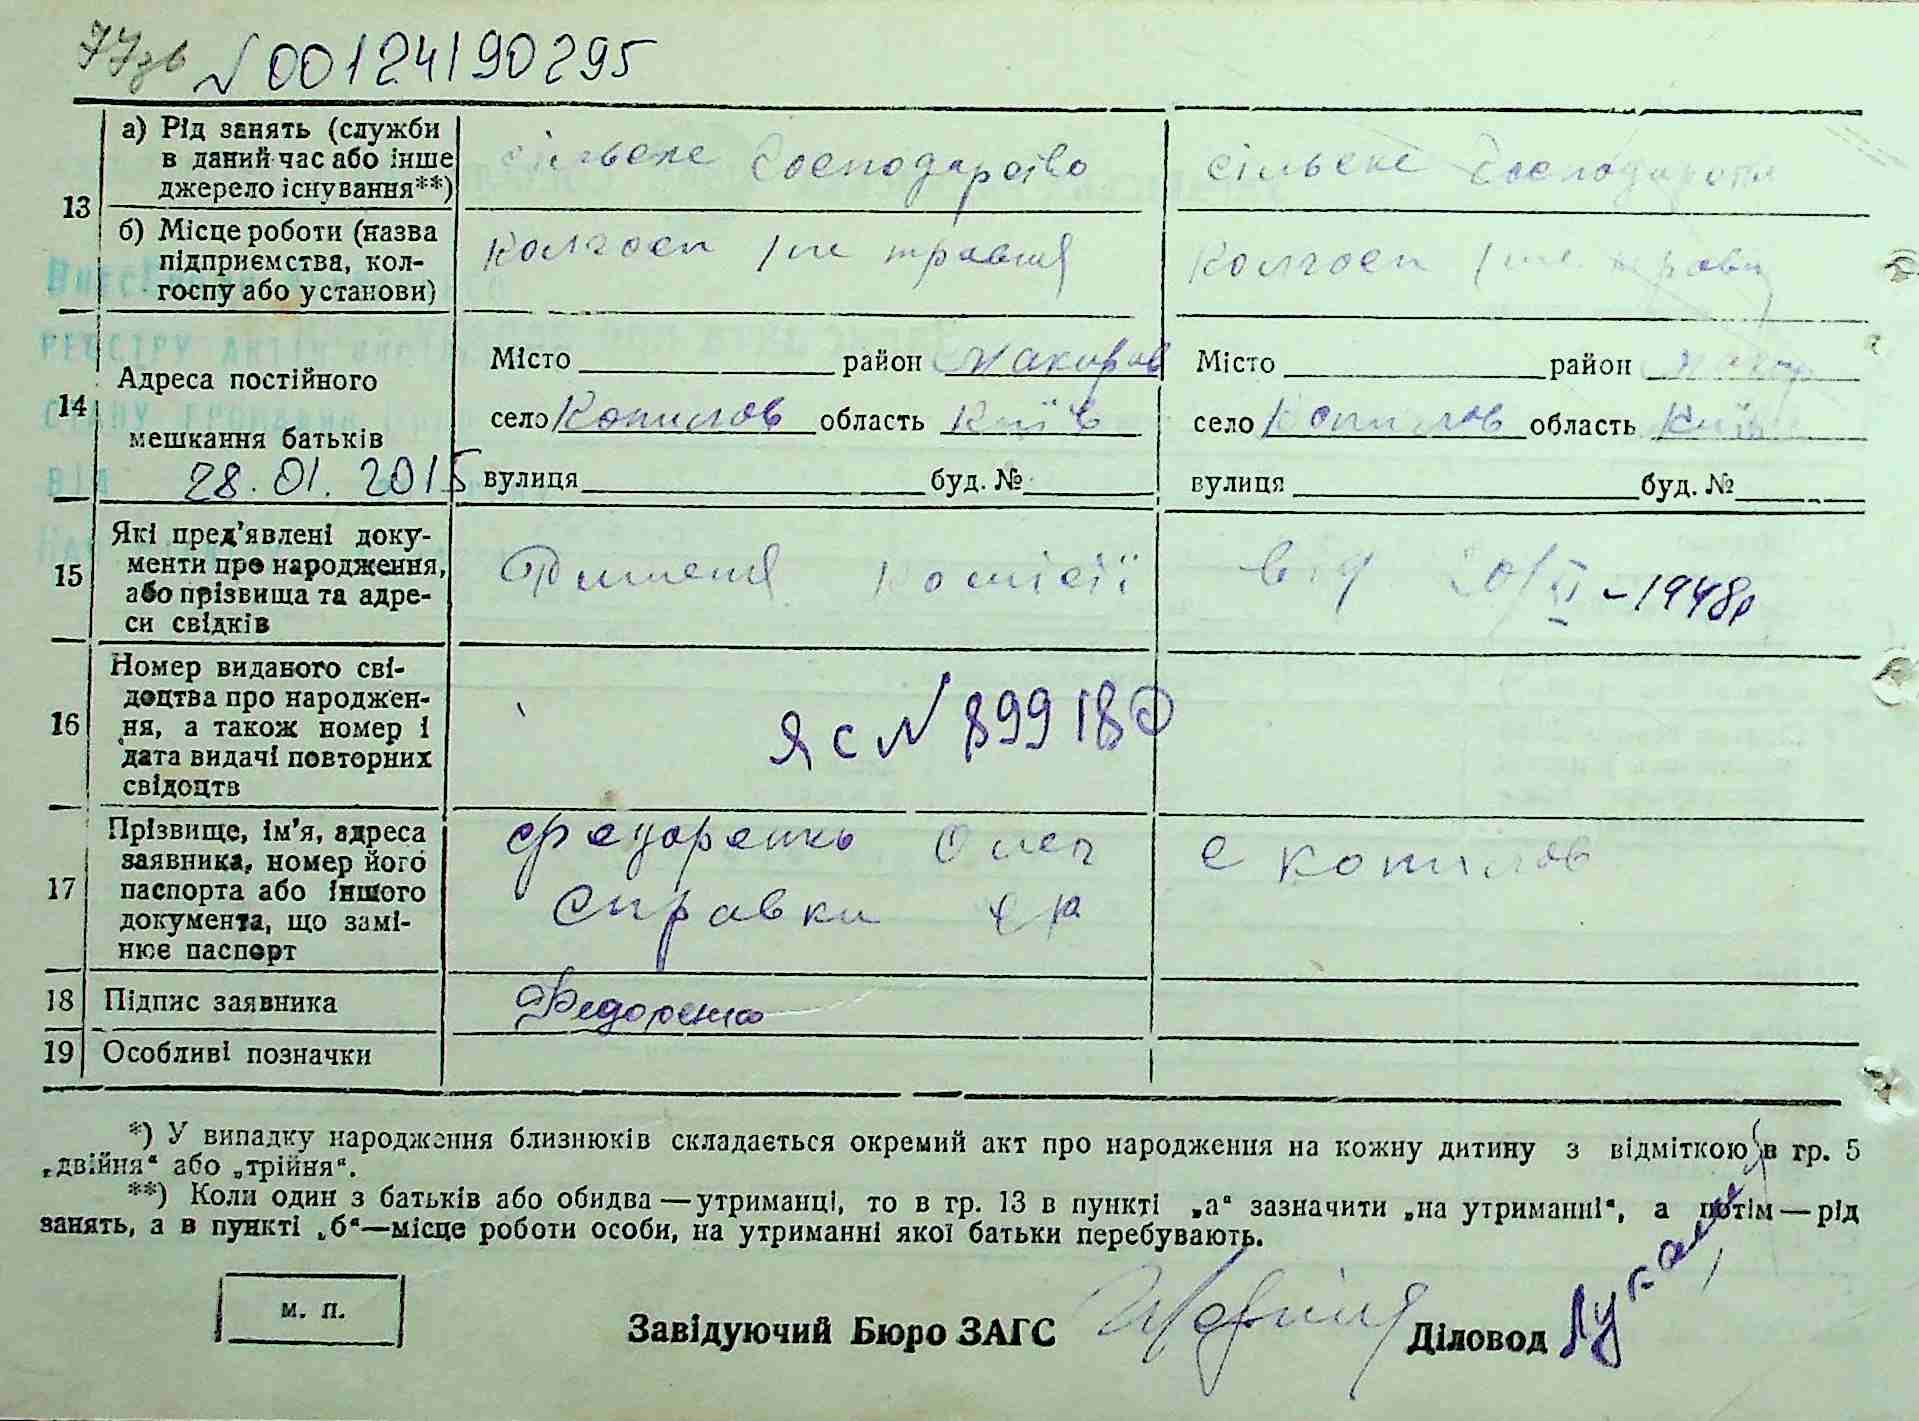 № 00124190295
13
а) Рід занять (служби в даний час або інше джерело існування**)
сільське господарство
сільське господарство
б) Місце роботи (назва підприємства, колгоспу або установи)
колгосп 1 ше травня
колгосп 1 ше травня
Внесено до Державного
реєстру актів цивільного
стану громадян
від 28.01.2015
14
Адреса постійного мешкання батьків
Місто район Макарів
село Копилов область Київ
вулиця буд. №
Місто район Макар
село Копилов область Київ
вулиця буд. №
15
Які пред'явлені документи про народження, або прізвища та адреси свідків
Рішення комісії
від 20/XI - 1948р
16
Номер виданого свідоцтва про народження, а також номер і дата видачі повторних свідоцтв
ЯС № 899180
17
Прізвище, ім'я, адреса заявника, номер його паспорта або іншого документа, що замінює паспорт
Федоренко Олег
с Копилов
справки
18
Підпис заявника
Федоренко
19
Особливі позначки
*) У випадку народження близнюків складається окремий акт про народження на кожну дитину з відміткою в гр. 5
„двійня“ або „трійня“.
**) Коли один з батьків або обидва — утриманці, то в гр. 13 в пункті „а“ зазначити „на утриманні“, а потім — рід
занять, а в пункті „б“—місце роботи особи, на утриманні якої батьки перебувають.
м. п.
Завідуючий Бюро ЗАГС
Діловод